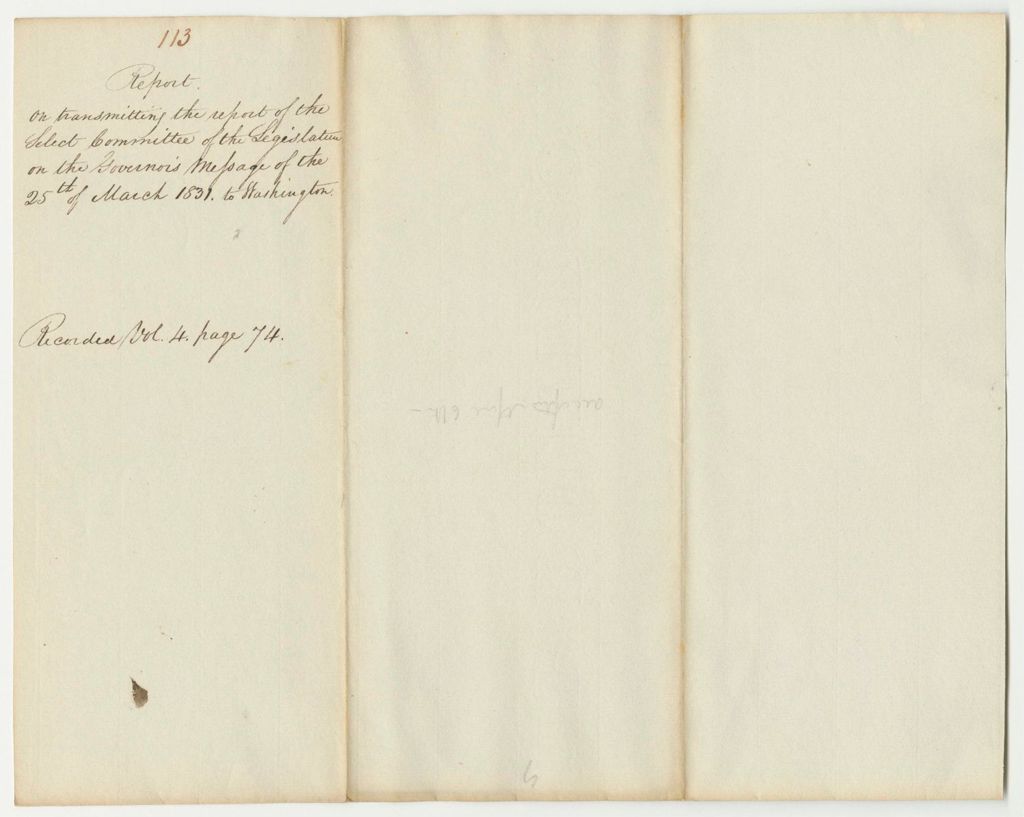 113
Report.
on transmitting the report of the
Select Committee of the Legislature
on the Governor's Message of the
25th of March 1831. to Washington.
Recorded Vol. 4. page 74.